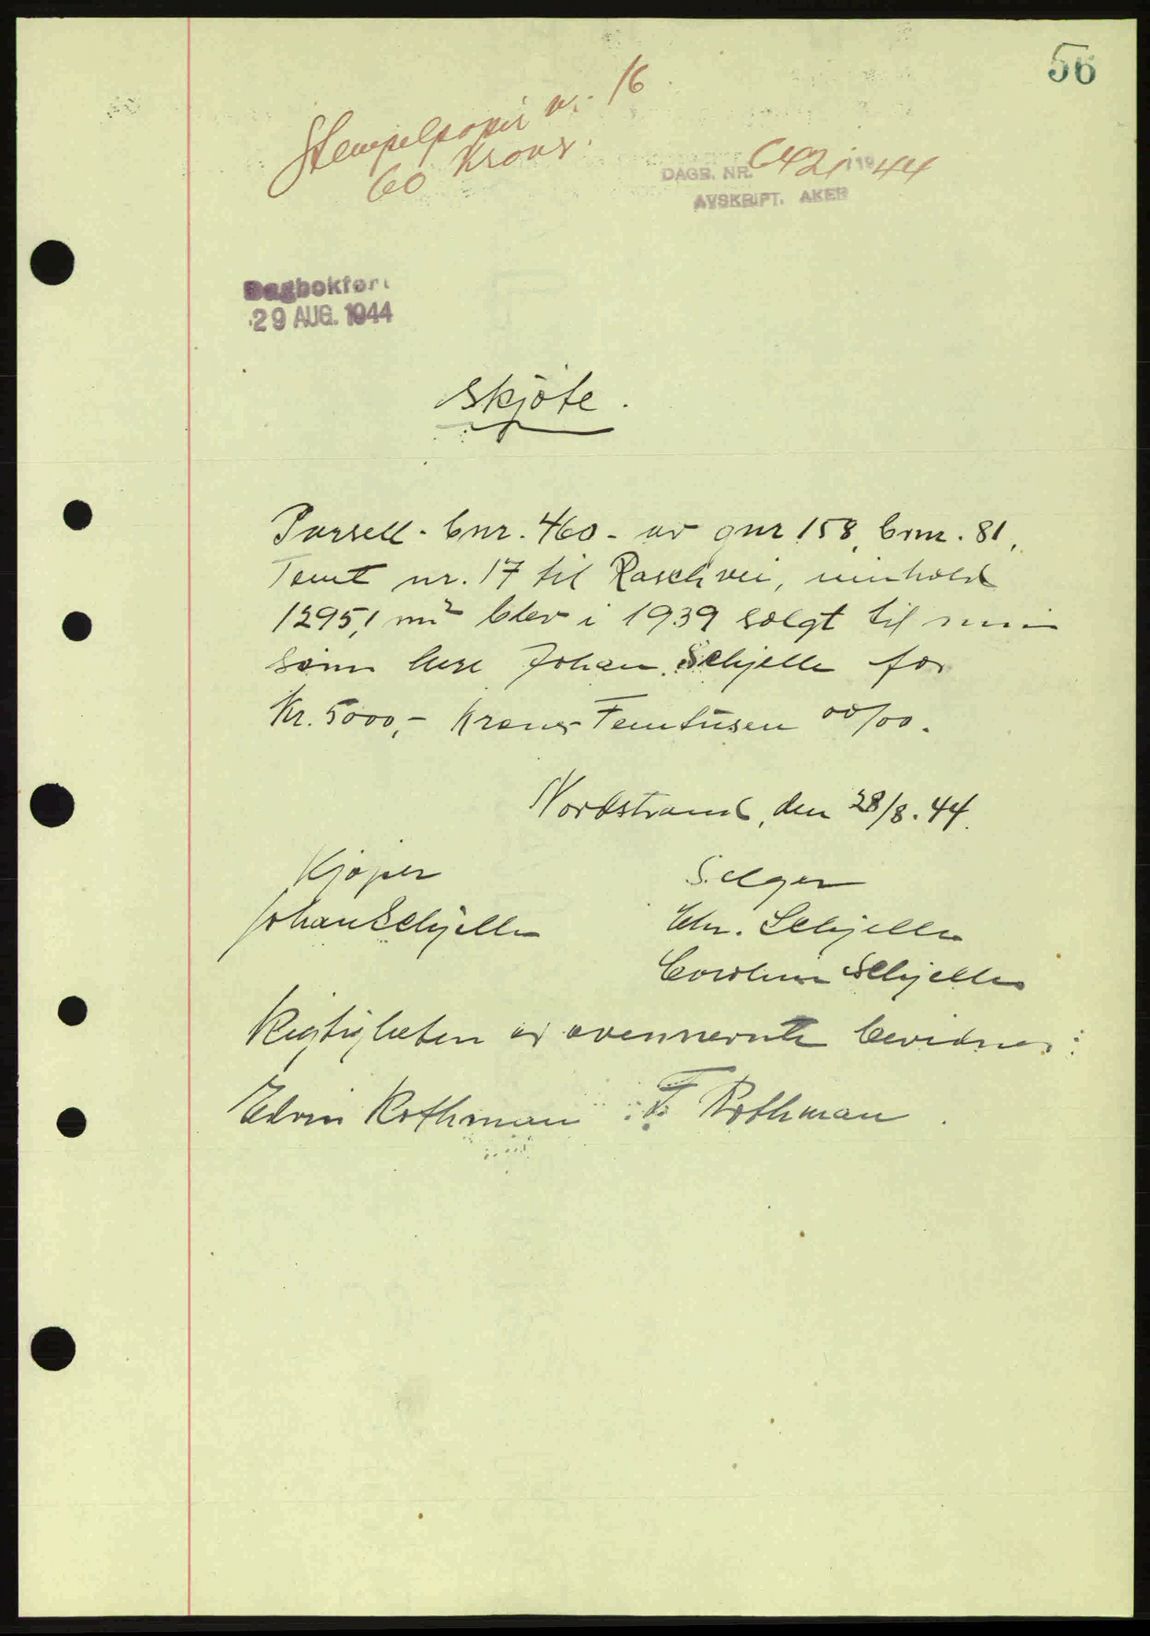 56
Stempelpapir nr. 16
60 Kroner.
DAGB. NR. 6421 1944
AVSKRIFT. AKER
Dagbokført
29 AUG. 1944
Skjøte.
Parsell - bnr. 460 - av gnr 158, brnr. 81,
Tomt nr. 17 til Rasch vei, innhold
1295,1 m² blev i 1939 solgt til min
sønn Johan Schjelle for
Kr. 5000,- Kroner Femtusen 00/00.
Nordstrand, den 28/8. 44.
Kjøper
Selger
Johan Schjelle
Chr. Schjelle
Caroline Schjelle
Rigtigheten av ovennevnte bevidnes:
Edvin Rothman F. Rothman